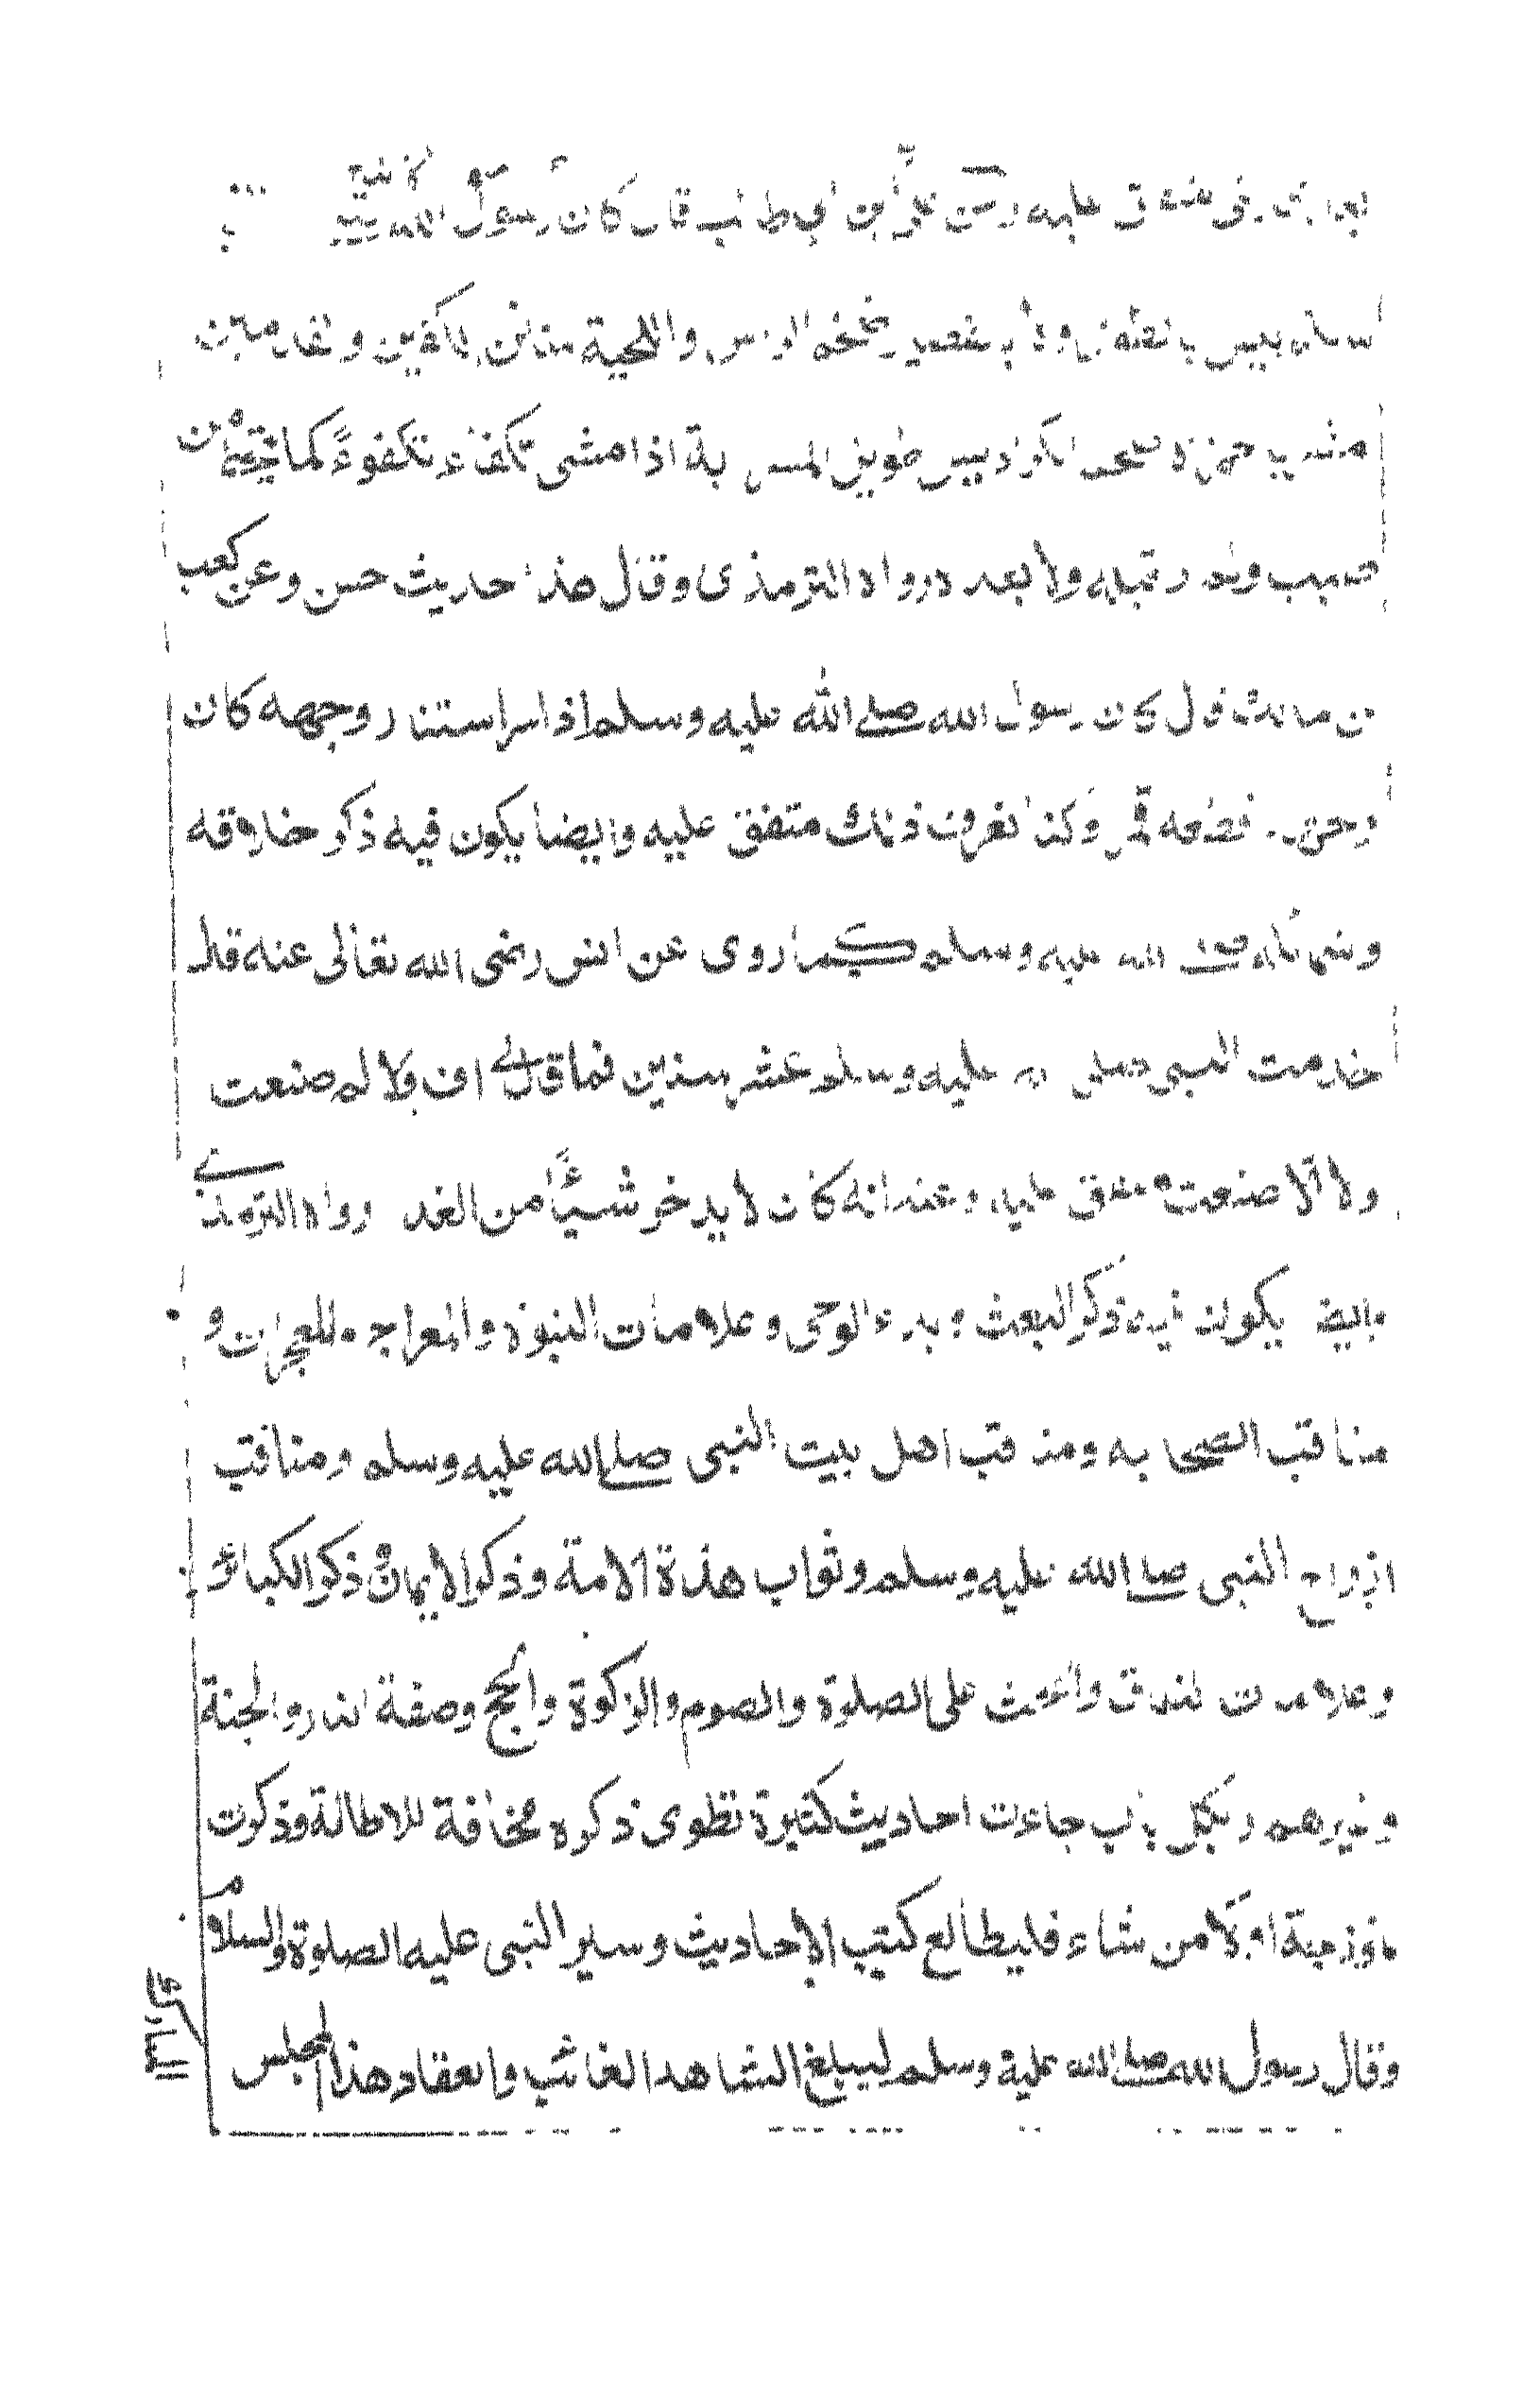 متفق عليه وعن علي بن ابي طالب قال كان رسول الله
ليس بالطويل ولا بالقصير ضخم الراس واللحية شثن الكفين والقدمين
مشرب حمرة ضخم الكراديس طويل المسربة اذا مشى تكفاء تكفوءً كما ينحط من
صبب ولم ار قبله ولا بعده رواه الترمذى وقال هذا حديث حسن وعن كعب
بن مالك قال كان رسول الله صلے الله عليه وسلم اذا سر استنار وجهه كان
وجهه قطعة قمر وكنا نعرف ذلك متفق عليه وايضا يكون فيه ذكر خلاقه
وشمائله صلے الله عليه وسلم كما روى عن انس رضى الله تعالى عنه قال
خدمت النبى صلى الله عليه وسلم عشر سنين فما قال لے اف ولا لم صنعت
ولا الا صنعت متفق عليه وعنه انه كان لا يدخر شيئًا من الغد رواه الترمذے
وايضا يكون فيه ذكر البعث وبدء الوحى وعلامات النبوة والمعراج والمعجزات و
مناقب الصحابه ومناقب اهل بيت النبى صلے الله عليه وسلم ومناقب
ازواج النبى صلے الله عليه وسلم وثواب هذه الامة وذكر الايمان وذكر الكبائر
وعلامات النفاق والحث على الصلوة والصوم والزكوة والحج وصفة النار والجنة
وغيرهم ولكل باب جاءت احاديث كثيرة نطوى ذكره مخافة للاطالة وذكرت
اولا من شاء فليطالع كتب الاحاديث وسير النبى عليه الصلوة والسلام
وقال رسول الله صلے الله عليه وسلم ليبلغ الشاهد الغائب وانعقاد هذا المجلس
المبارك